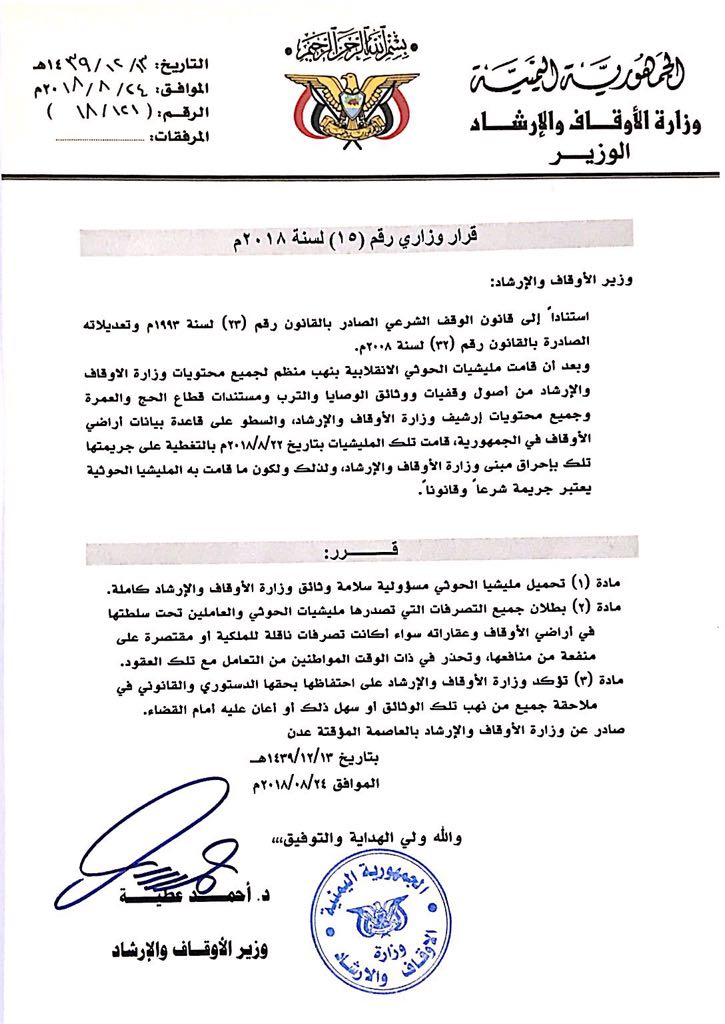 بسم الله الرحمن الرحيم
الجمهورية اليمنية
وزارة الأوقاف والإرشاد
الوزير
التاريخ: ١٤٣٩/١٢/١٣هـ
الموافق: ٢٠١٨/٨/٢٤م
الرقم: (١٨/١٢١)
المرفقات:
قرار وزاري رقم (١٥) لسنة ٢٠١٨م
وزير الأوقاف والإرشاد:
استناداً إلى قانون الوقف الشرعي الصادر بالقانون رقم (٢٣) لسنة ١٩٩٣م وتعديلاته
الصادرة بالقانون رقم (٣٢) لسنة ٢٠٠٨م.
وبعد أن قامت مليشيات الحوثي الانقلابية بنهب منظم لجميع محتويات وزارة الاوقاف
والإرشاد من أصول وقفيات ووثائق الوصايا والترب ومستندات قطاع الحج والعمرة
وجميع محتويات إرشيف وزارة الأوقاف والإرشاد، والسطو على قاعدة بيانات أراضي
الأوقاف في الجمهورية، قامت تلك المليشيات بتاريخ ٢٠١٨/٨/٢٢م بالتغطية على جريمتها
تلك بإحراق مبنى وزارة الأوقاف والإرشاد، ولذلك ولكون ما قامت به المليشيا الحوثية
يعتبر جريمة شرعاً وقانوناً.
قــــــرر:
مادة (١) تحميل مليشيا الحوثي مسؤولية سلامة وثائق وزارة الأوقاف والإرشاد كاملة.
مادة (٢) بطلان جميع التصرفات التي تصدرها مليشيات الحوثي والعاملين تحت سلطتها
في أراضي الأوقاف وعقاراته سواء أكانت تصرفات ناقلة للملكية أو مقتصرة على
منفعة من منافعها، وتحذر في ذات الوقت المواطنين من التعامل مع تلك العقود.
مادة (٣) تؤكد وزارة الأوقاف والإرشاد على احتفاظها بحقها الدستوري والقانوني في
ملاحقة جميع من نهب تلك الوثائق أو سهل ذلك أو أعان عليه أمام القضاء.
صادر عن وزارة الأوقاف والإرشاد بالعاصمة المؤقتة عدن
بتاريخ ١٤٣٩/١٢/١٣هـ
الموافق ٢٠١٨/٠٨/٢٤م
والله ولي الهداية والتوفيق،،،
د. أحمــد عطيــة
وزير الأوقاف والإرشاد
الجمهورية اليمنية
وزارة
الاوقاف والارشاد